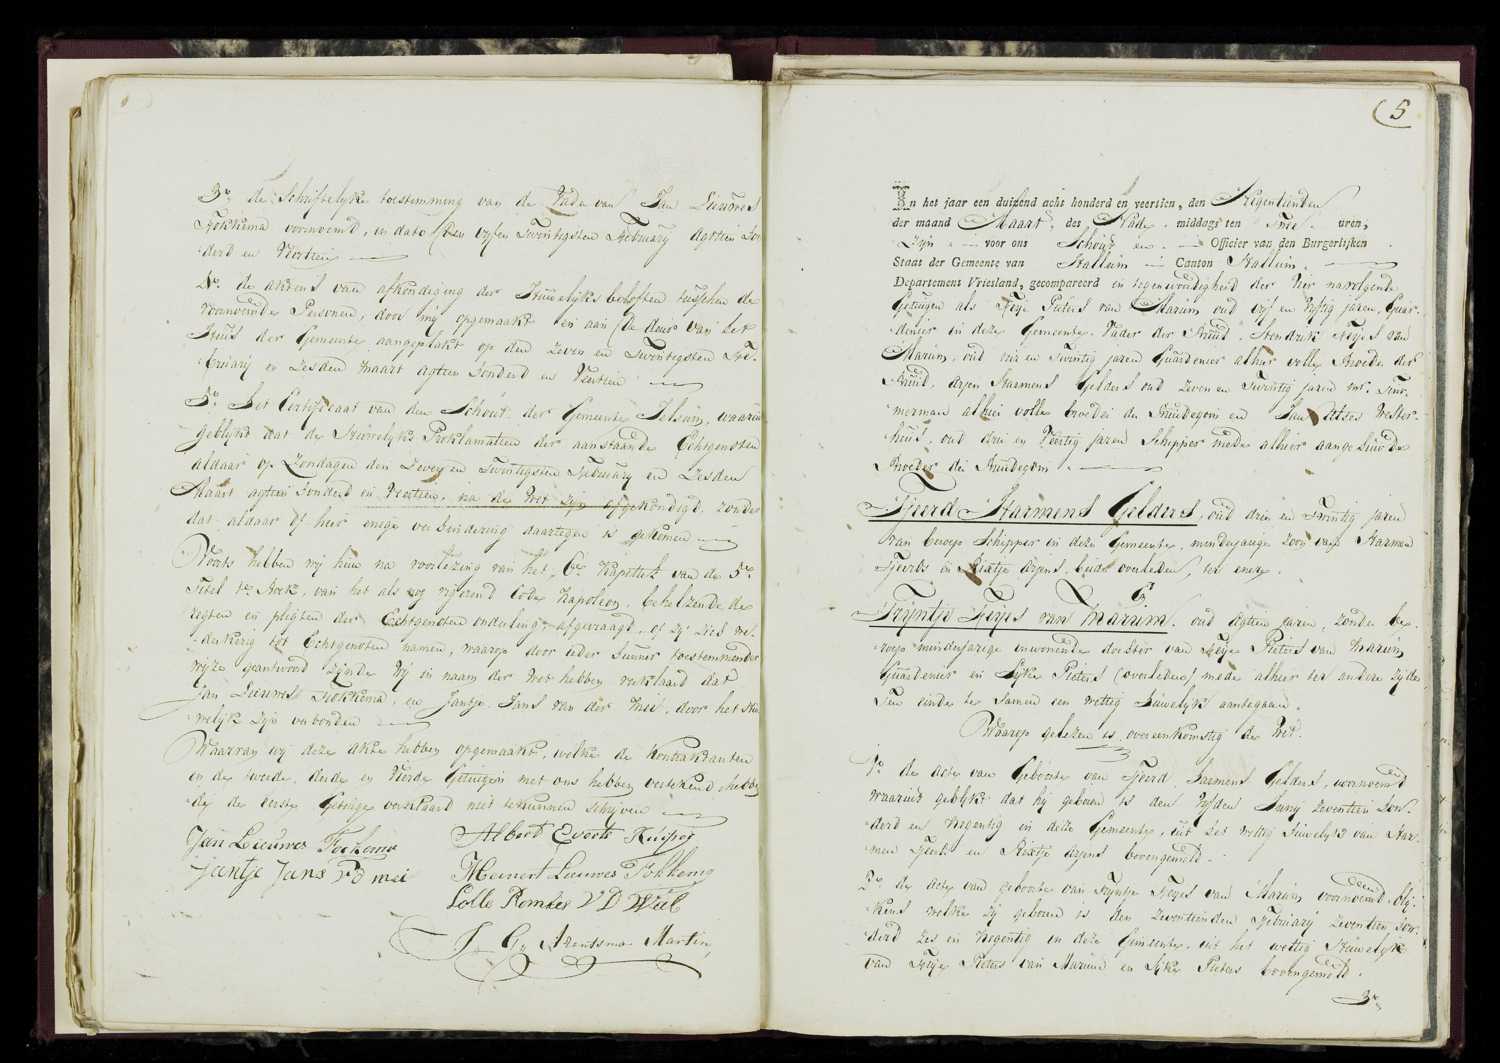 3e. de Schriftelijke toestemming van de Vader van Jan Lieuwes
Fokkema voornoemd, in dato den vyf en twintigsten February agttien hon
derd en Veertien
4e. de aktens van afkondiging der Huwelijks beloften tusschen de
voornoemde Personen, door mij opgemaakt en aan de deur van het
Huis der Gemeente aangeplakt op den zeven en twintigsten Fe-
bruary en zesden Maart agttien honderd en Veertien
5e. Het Certificaat van den Schout der Gemeente Jelsum, waaruit
geblykt dat de Huwelyks Proklamatien der aanstaande Echtgenoten
aldaar op Zondagen den Zeven en twintigsten February en Zesden
Maart agttien honderd en Veertien, na de Wet zijn afgekondigd, zonder
dat aldaar of hier enige verhindering daartegen is gekomen
Voorts hebben wij hun na voorlezing van het 6e. Kapittel van de 5e.
Titel 1e. Boek, van het als nog vigerend Code Napoleon, behelzende de
regten en pligten der Echtgenoten onderling, afgevraagd, of zij zich we-
derkerig tot Echtgenoten namen, waarop door ieder hunner toestemmender
wijze geantwoord zijnde Wij in naam der Wet hebben verklaard dat
Jan Lieuwes Fokkema, en Jantje Jans van der Meer, door het Hu
welyk zyn verbonden
Waarvan wij deze akte hebben opgemaakt, welke de Kontraktanten
en de tweede, derde en Vierde Getuigen met ons hebben vertekend, hebben
de de eerste Getuige verklaard niet te kunnen schryven
Jan Lieuwes Fockema Albert Everts Kuiper
Jantje Jans v d mei Meinert Lieuwes Fokkema
Lolle Romkes V D Wiel
J. G. Arentsma Martin
5
In het jaar een duizend acht honderd en veertien, den Negentienden
der maand Maart, des Nade- middags ten Twee uren,
Zijn voor ons Schout en Officier van den Burgerlijken
Staat der Gemeente van Hallum Canton Hallum
Departement Vriesland, gecompareerd in tegenwoordigheid der hier navolgende
Getuigen als Feije Pieters van Marum oud vyf en vyftig jaren, Guar-
denier in deze Gemeente Vader der Bruid, Hendrik Feijes van
Marum, oud vier en twintig jaren Guardenier alhier volle Broeder der
Bruid, Arjen Harmens Gelders oud zeven en twintig jaren mr. Tim-
merman alhier volle broeder des Bruidegoms en Jan Wester-
huis, oud drie en Veertig jaren Schipper mede alhier aangehuwde
Broeder des Bruidegoms
Tjeerd Harmens Gelders, oud drie en twintig jaren
van beroep Schipper in deze Gemeente, minderjarige zoon van Harmen
Tjeerds en Rixtje Arjens, beide overleden, ter enere
En
Trijntje Feijes van Marum, oud agtien jaren, zonder be-
roep minderjarige inwonende dochter van Feije Pieters van Marum
Guardenier en Sijke Pieters (overleden) mede alhier ter andere zijde
Ten einde te samen een wettig huwelyk aantegaan.
Waarop gelezen is overeenkomstig de Wet.
1e. de acte van Geboorte van Tjeerd Harmens Gelders, voornoemd
waaruit geblykt dat hij geboren is den Vyfden Juny zeventien hon-
derd en Negentig in deze Gemeente, uit het wettig huwelyk van Har-
men Tjeerds en Rixtje Arjens bovengemeld.
2e. de acte van geboorte van Tryntje Feyes van Marum voornoemd blij-
kens welke zij geboren is den zeventienden February zeventien hon-
derd zes en Negentig in deze Gemeente, uit het wettig Huwelyk
van Feije Pieters van Marum en Sijke Pieters bovengemeld.
3e.